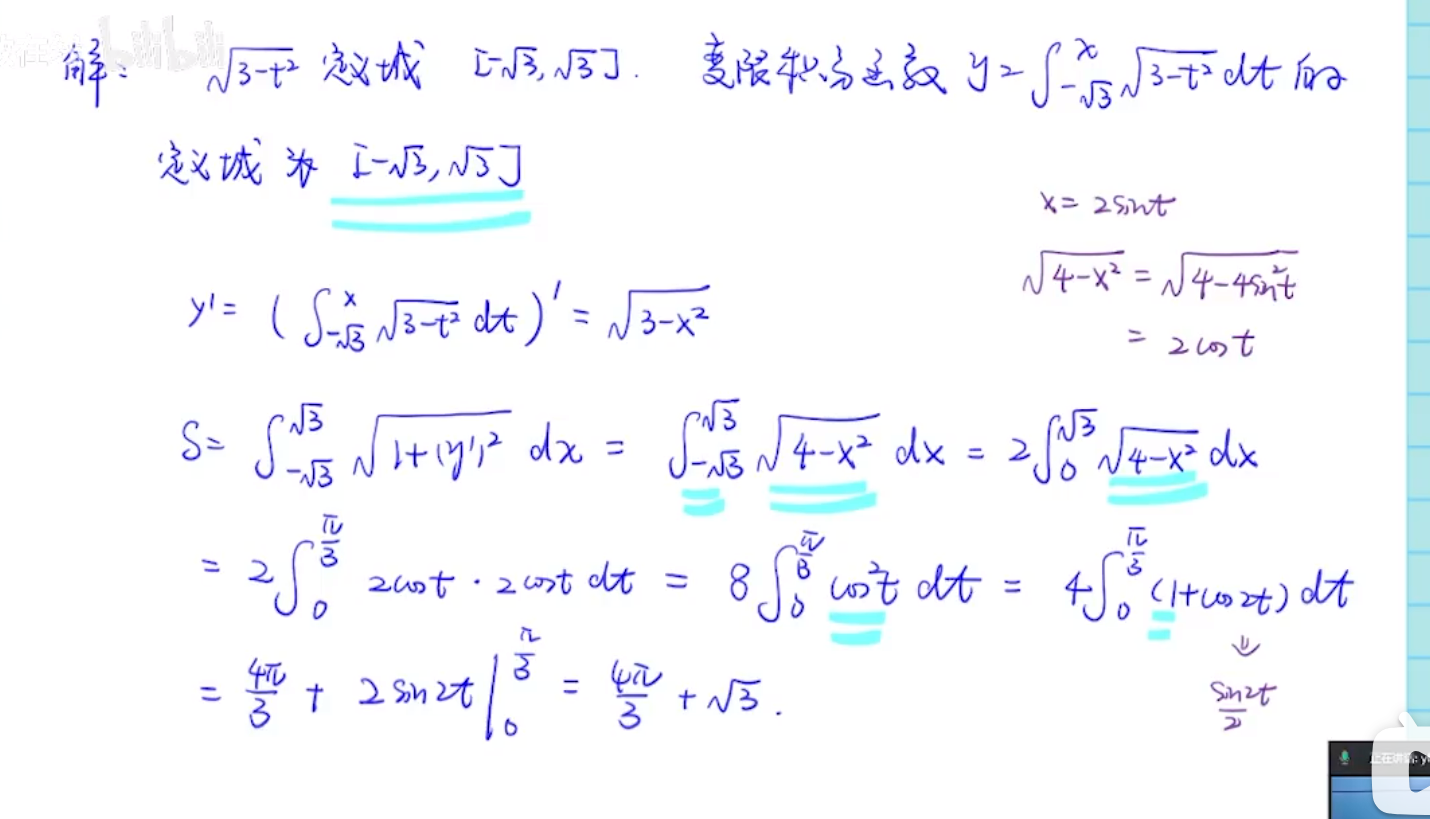 解: √(3-t²) 定义域 [-√3, √3]. 变限积分函数 y=∫_{-√3}^{x} √(3-t²) dt 的
定义域为 [-√3, √3]
x= 2sint
√(4-x²) = √(4-4sin²t)
= 2cost
y'= (∫_{-√3}^{x} √(3-t²) dt)' = √(3-x²)
S= ∫_{-√3}^{√3} √(1+(y')²) dx = ∫_{-√3}^{√3} √(4-x²) dx = 2∫_{0}^{√3} √(4-x²) dx
= 2∫_{0}^{π/3} 2cost · 2cost dt = 8∫_{0}^{π/3} cos²t dt = 4∫_{0}^{π/3} (1+cos2t) dt
⇓
sin2t/2
= 4π/3 + 2sin2t |_{0}^{π/3} = 4π/3 + √3.
bilibili
正在讲话: